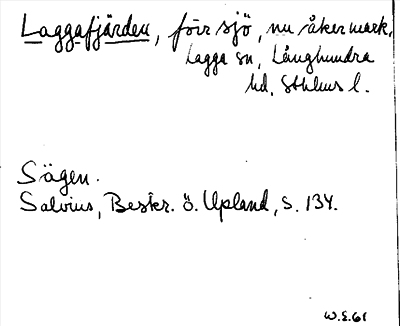 Laggafjärden, förr sjö, nu åkermark,
Lagga sn, Långhundra
hd, Sthlms l.
Sägen.
Salvius, Beskr. ö. Upland, s. 134.
W.E.61